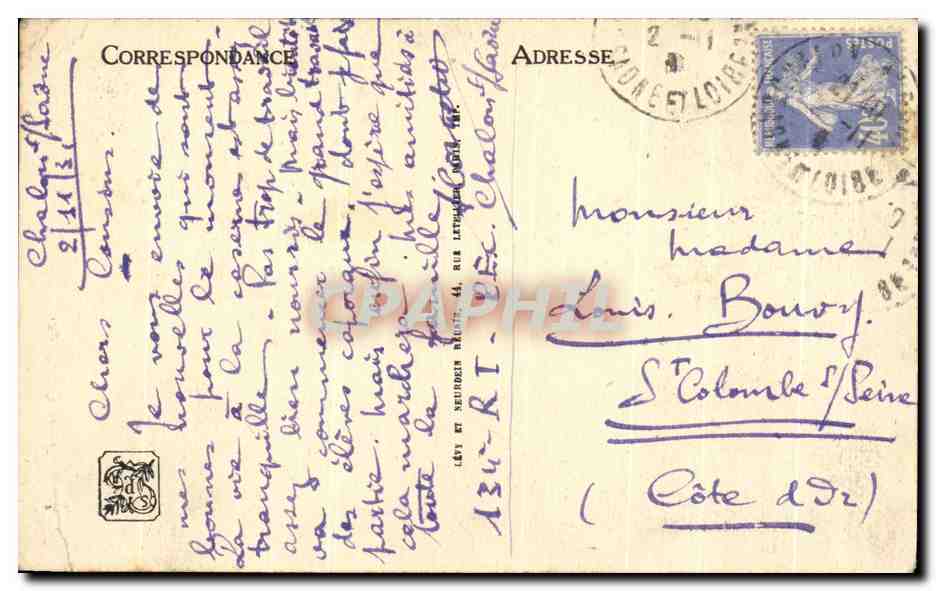 CORRESPONDANCE
Chalon s/Saône
2/11/31
Chers Cousins.
Je vous envoie de
mes nouvelles qui sont
bonnes pour le moment -
La vie à la caserne est assez
tranquille - Pas trop de travail
assez bien nourris - mais bientôt
va commencer le grand travail
des élèves caporaux, dont je fais
partie. Mais enfin j'espère que
cela marchera. Mes amitiés à
toute la famille
134e R I - Chalon s/Saône
LÉVY ET NEURDEIN RÉUNIS, 44, RUE LETELLIER, PARIS, IMP.
ADRESSE
Monsieur
Madame
Louis Bouvry.
St Colombe s/Seine
(Côte d'Or)
SAONE ET LOIRE
2 - 1
POSTES
40c
CPAPHIL